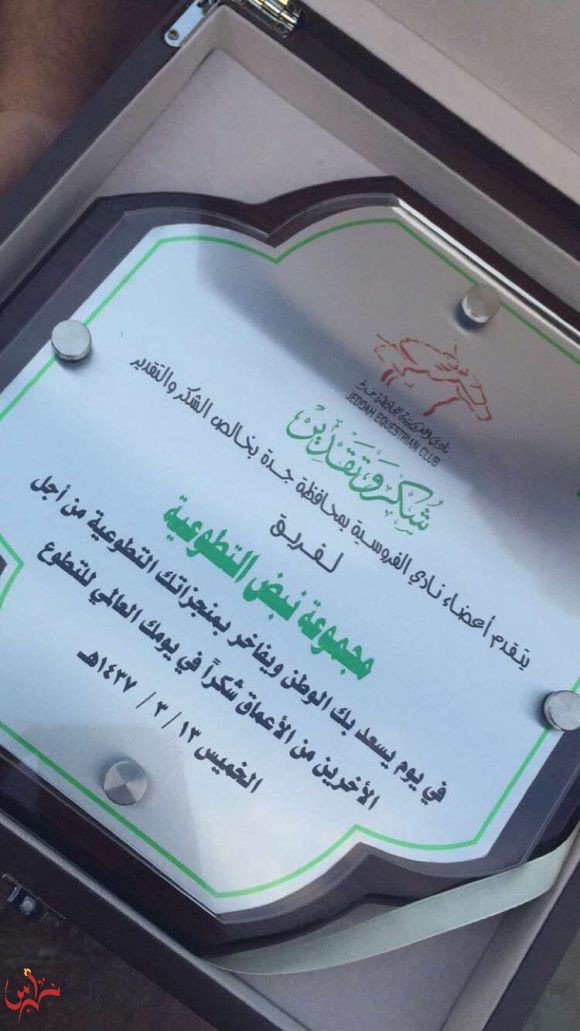 نادي الفروسية بمحافظة جدة
JEDDAH EQUESTRIAN CLUB
شُكر وَتَقدير
يتقدم أعضاء نادي الفروسية بمحافظة جدة بخالص الشكر والتقدير
لفريق
مجموعة نبض التطوعية
في يوم يسعد بك الوطن ويفاخر بمنجزاتك التطوعية من أجل
الأخرين من الأعماق شكراً في يومك العالمي للتطوع
الخميس ١٣ / ٣ / ١٤٣٧هـ